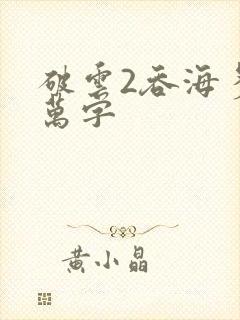 破雲2吞海
萬字
黄小晶